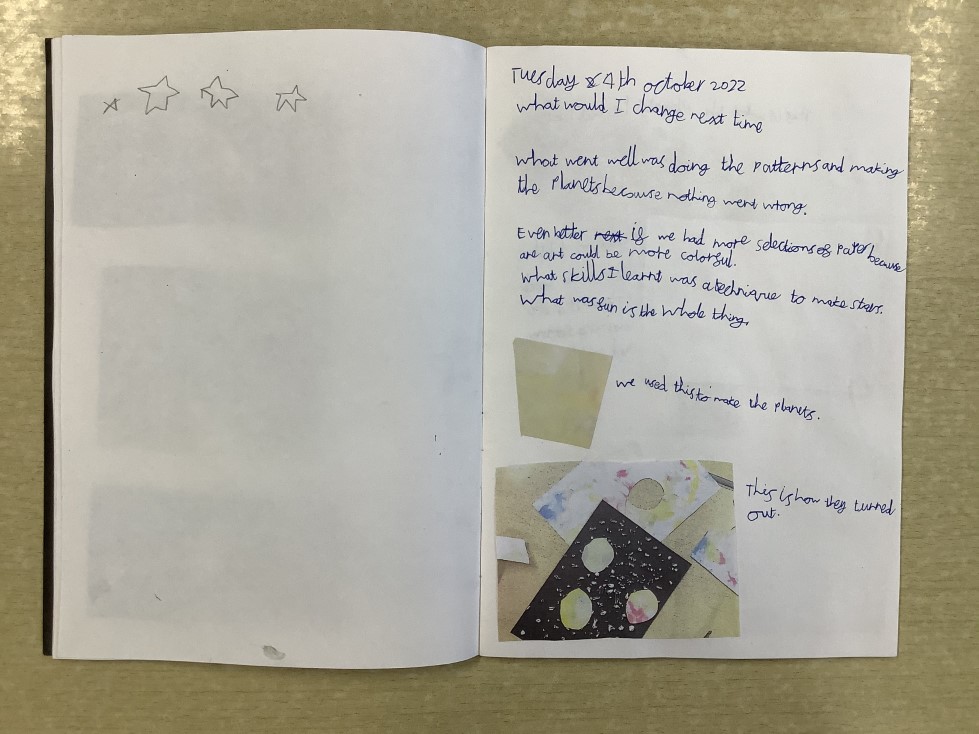 Tuesday 4th october 2022
what would I change next time
what went well was doing the patterns and making
the planets because nothing went wrong.
Even better next if we had more selections of because
are art could be more colorful.
what skills I learnt was a technique to make stars.
what was fun is the whole thing.
we used this to make the planets.
This is how they turned
out.